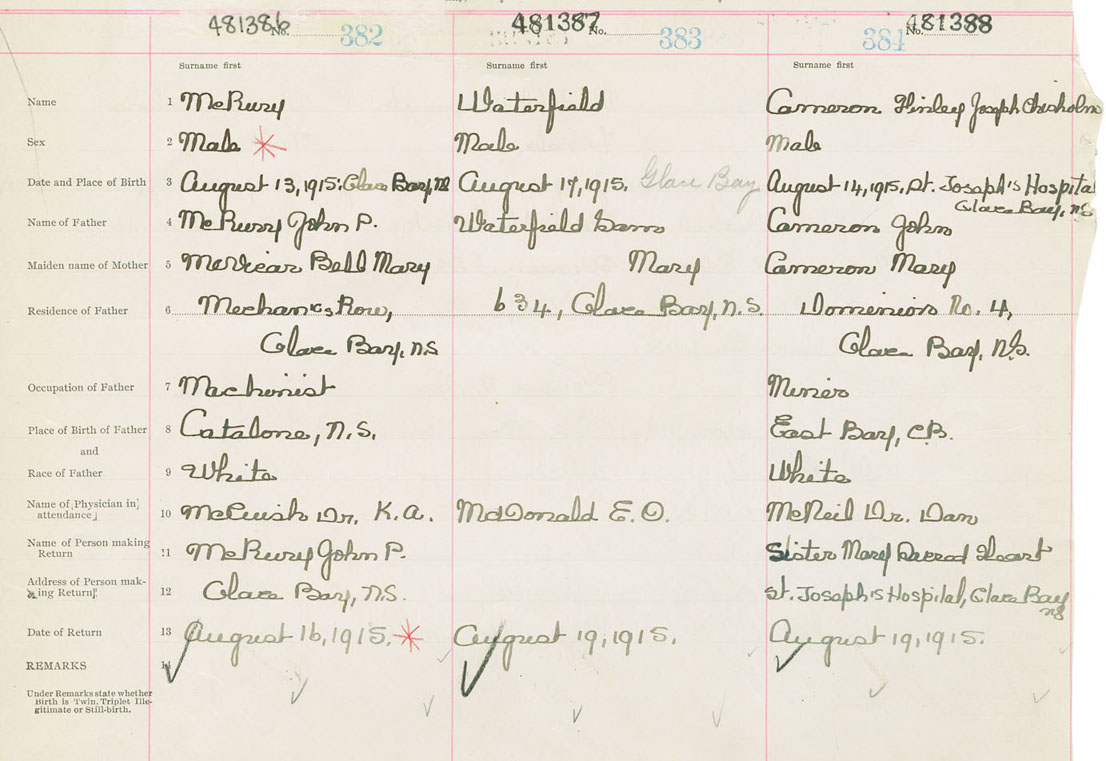 481386 No. 382 481387 No. 383 384 No. 481388
Surname first Surname first Surname first
Name 1 McRury Waterfield Cameron Finley Joseph Chisholm
Sex 2 Male * Male Male
Date and Place of Birth 3 August 13, 1915. Glace Bay, NS August 17, 1915. Glace Bay August 14, 1915. St. Joseph's Hospital
Glace Bay, NS
Name of Father 4 McRury John P. Waterfield Sam Cameron John
Maiden name of Mother 5 McVicar Bell Mary Mary Cameron Mary
Residence of Father 6 Mechanics Row, 634, Glace Bay, N.S. Dominion No. 4,
Glace Bay, N.S Glace Bay, N.S.
Occupation of Father 7 Machinist Miner
Place of Birth of Father 8 Catalone, N.S. East Bay, C.B.
and
Race of Father 9 White White
Name of [Physician in
attendance] 10 McCuish Dr. K.A. McDonald E.O. McNeil Dr. Dan
Name of Person making
Return 11 McRury John P. Sister Mary Sacred Heart
Address of Person mak-
ing Return] 12 Glace Bay, N.S. St. Joseph's Hospital, Glace Bay
NS
Date of Return 13 August 16, 1915. * August 19, 1915. August 19, 1915.
REMARKS 14
Under Remarks state whether
Birth is Twin, Triplet Ille-
gitimate or Still-birth.